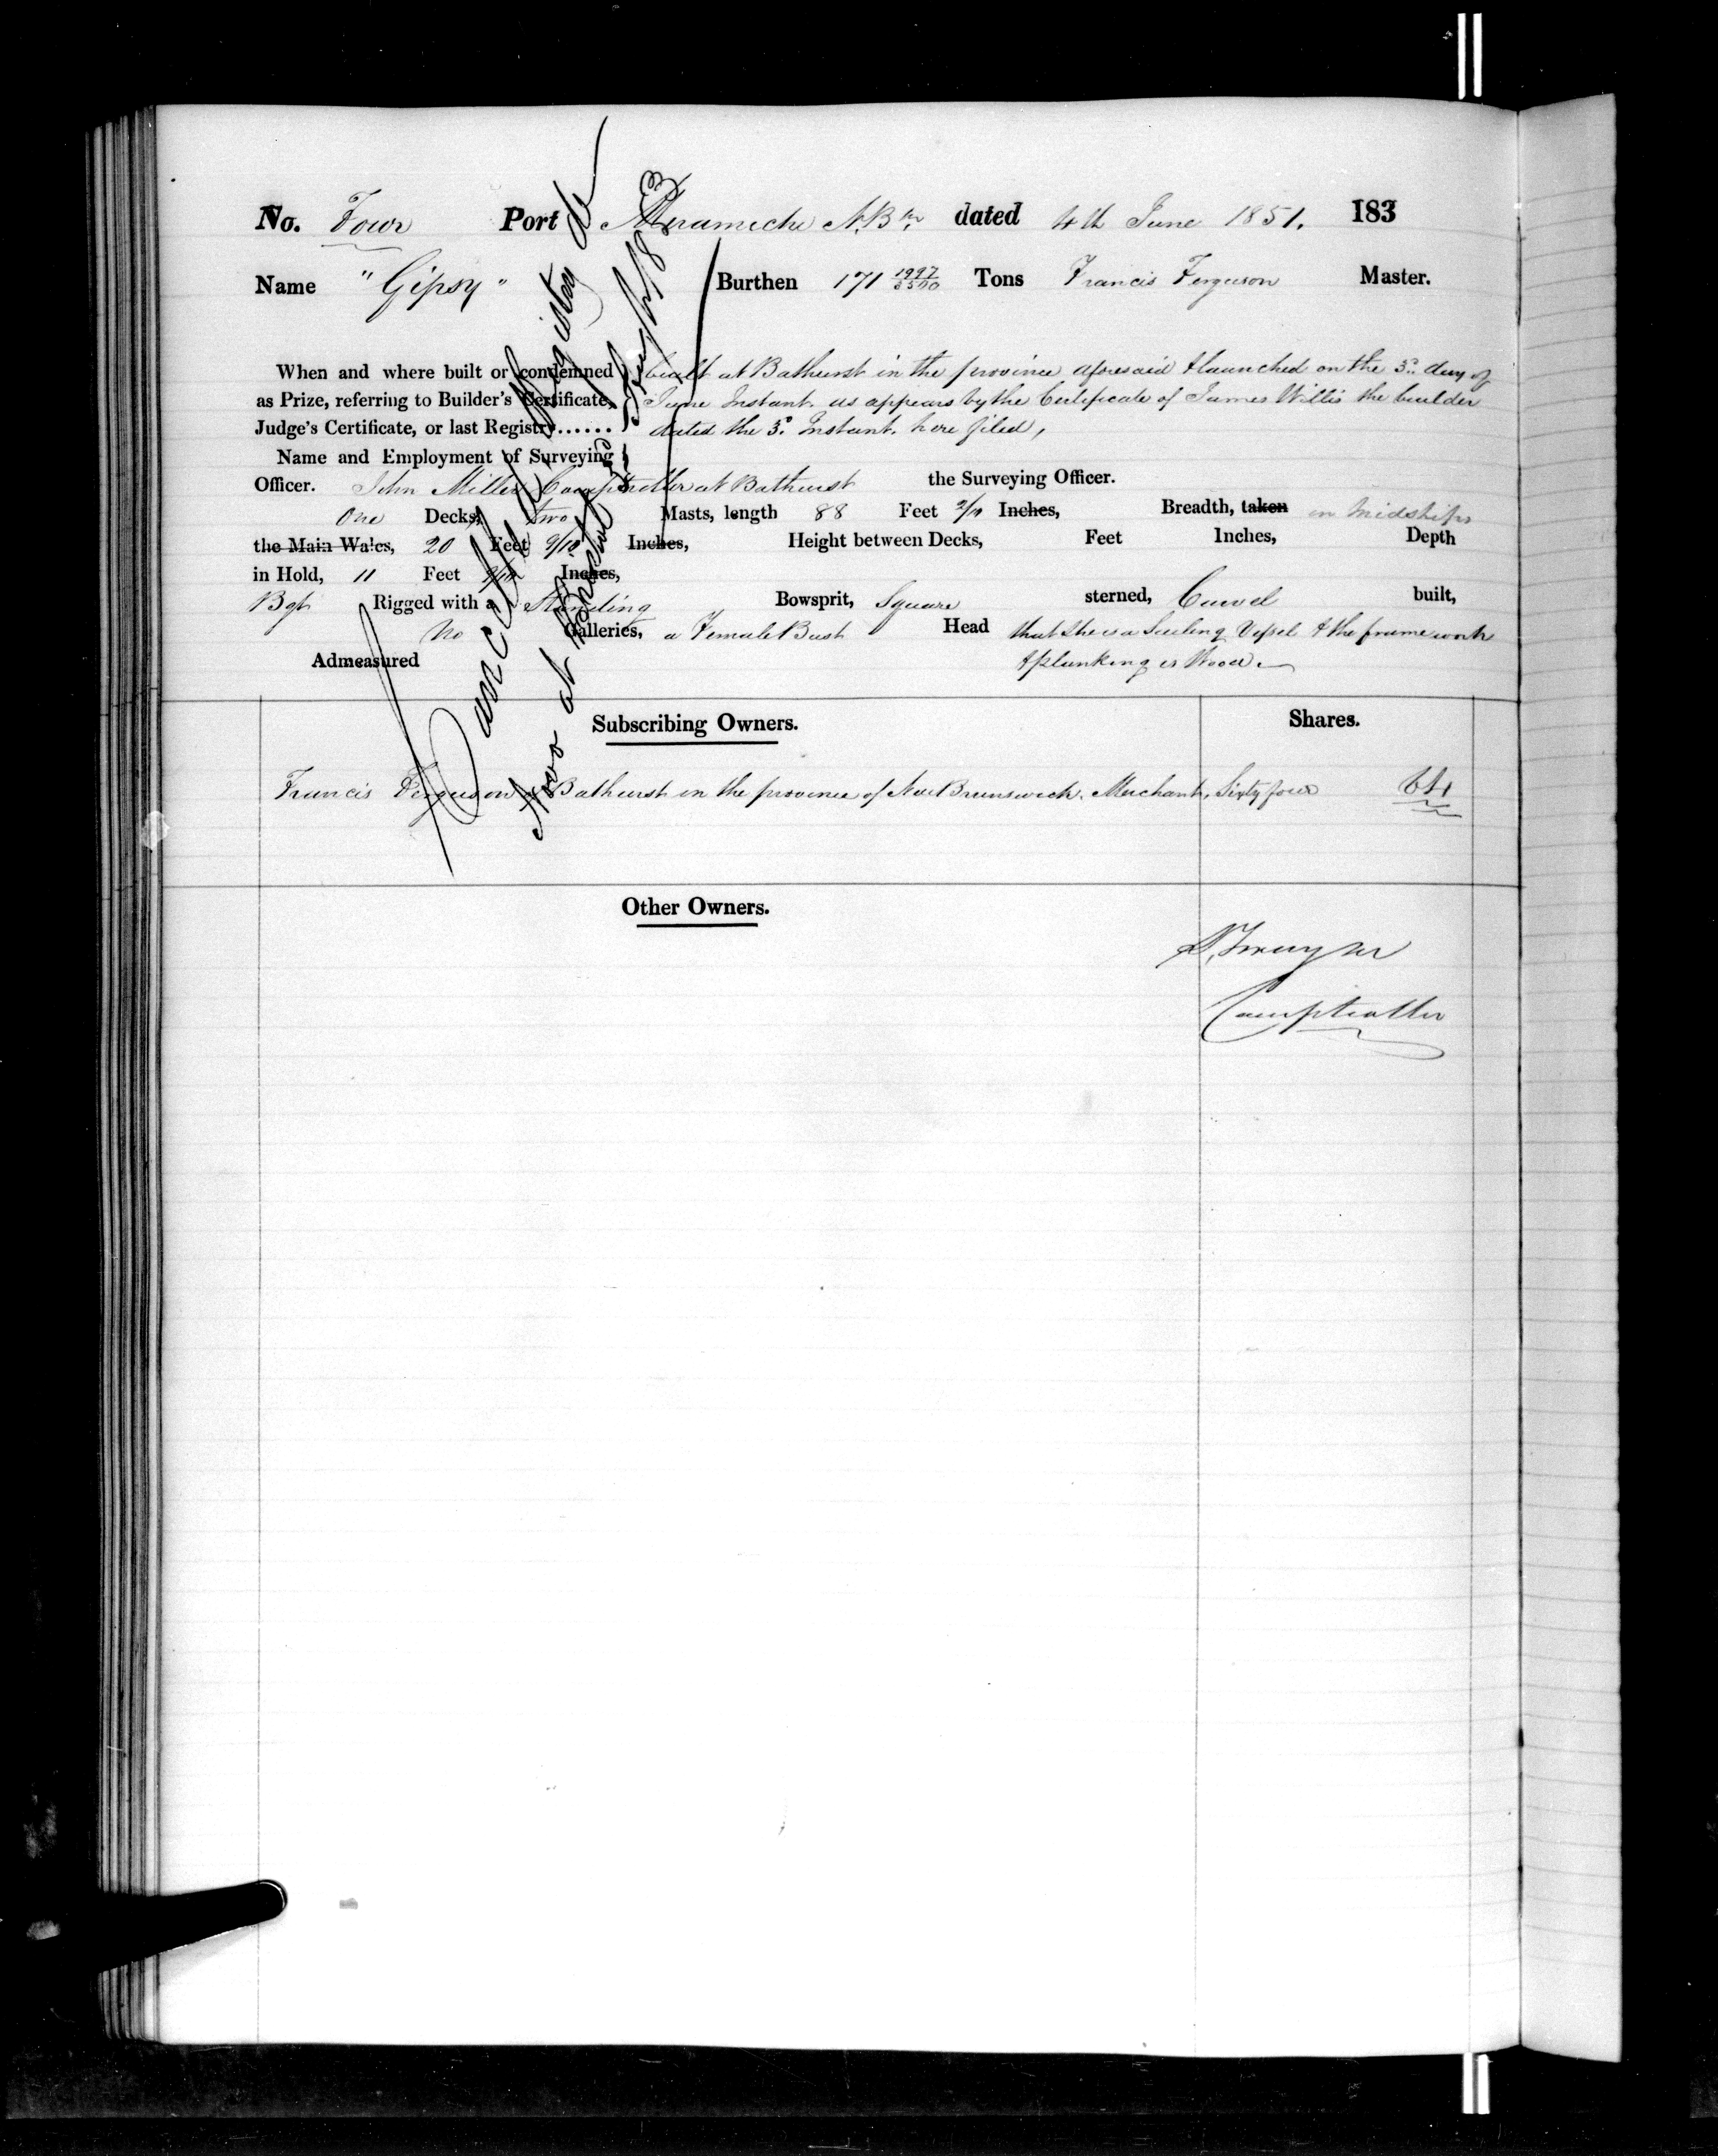 No. Four Port Miramichi N.Bk. dated 4th June 1851. 183
Name "Gipsy" Burthen 171 1997/3500 Tons Francis Ferguson Master.
When and where built or condemned built at Bathurst in the province aforesaid & launched on the 3d. day of
as Prize, referring to Builder's Certificate, June Instant. as appears by the Certificate of James Willis the builder
Judge's Certificate, or last Registry...... dated the 3d. Instant. here filed,
Name and Employment of Surveying
Officer. John Miller Comptroller at Bathurst the Surveying Officer.
One Decks, two Masts, length 88 Feet 2/10 Inches, Breadth, taken in Midships
the Main Wales, 20 Feet 9/10 Inches, Height between Decks, Feet Inches, Depth
in Hold, 11 Feet Inches,
Bgt Rigged with a Standing Bowsprit, Square sterned, Carvel built,
No Galleries, a Female Bust Head that she is a Sailing Vessel & the framework
Admeasured & planking is Wood.
Cancelled Registry de
novo at
Subscribing Owners. Shares.
Francis Ferguson of Bathurst in the province of New Brunswick. Merchant, Sixty four 64
Other Owners.
Comptroller